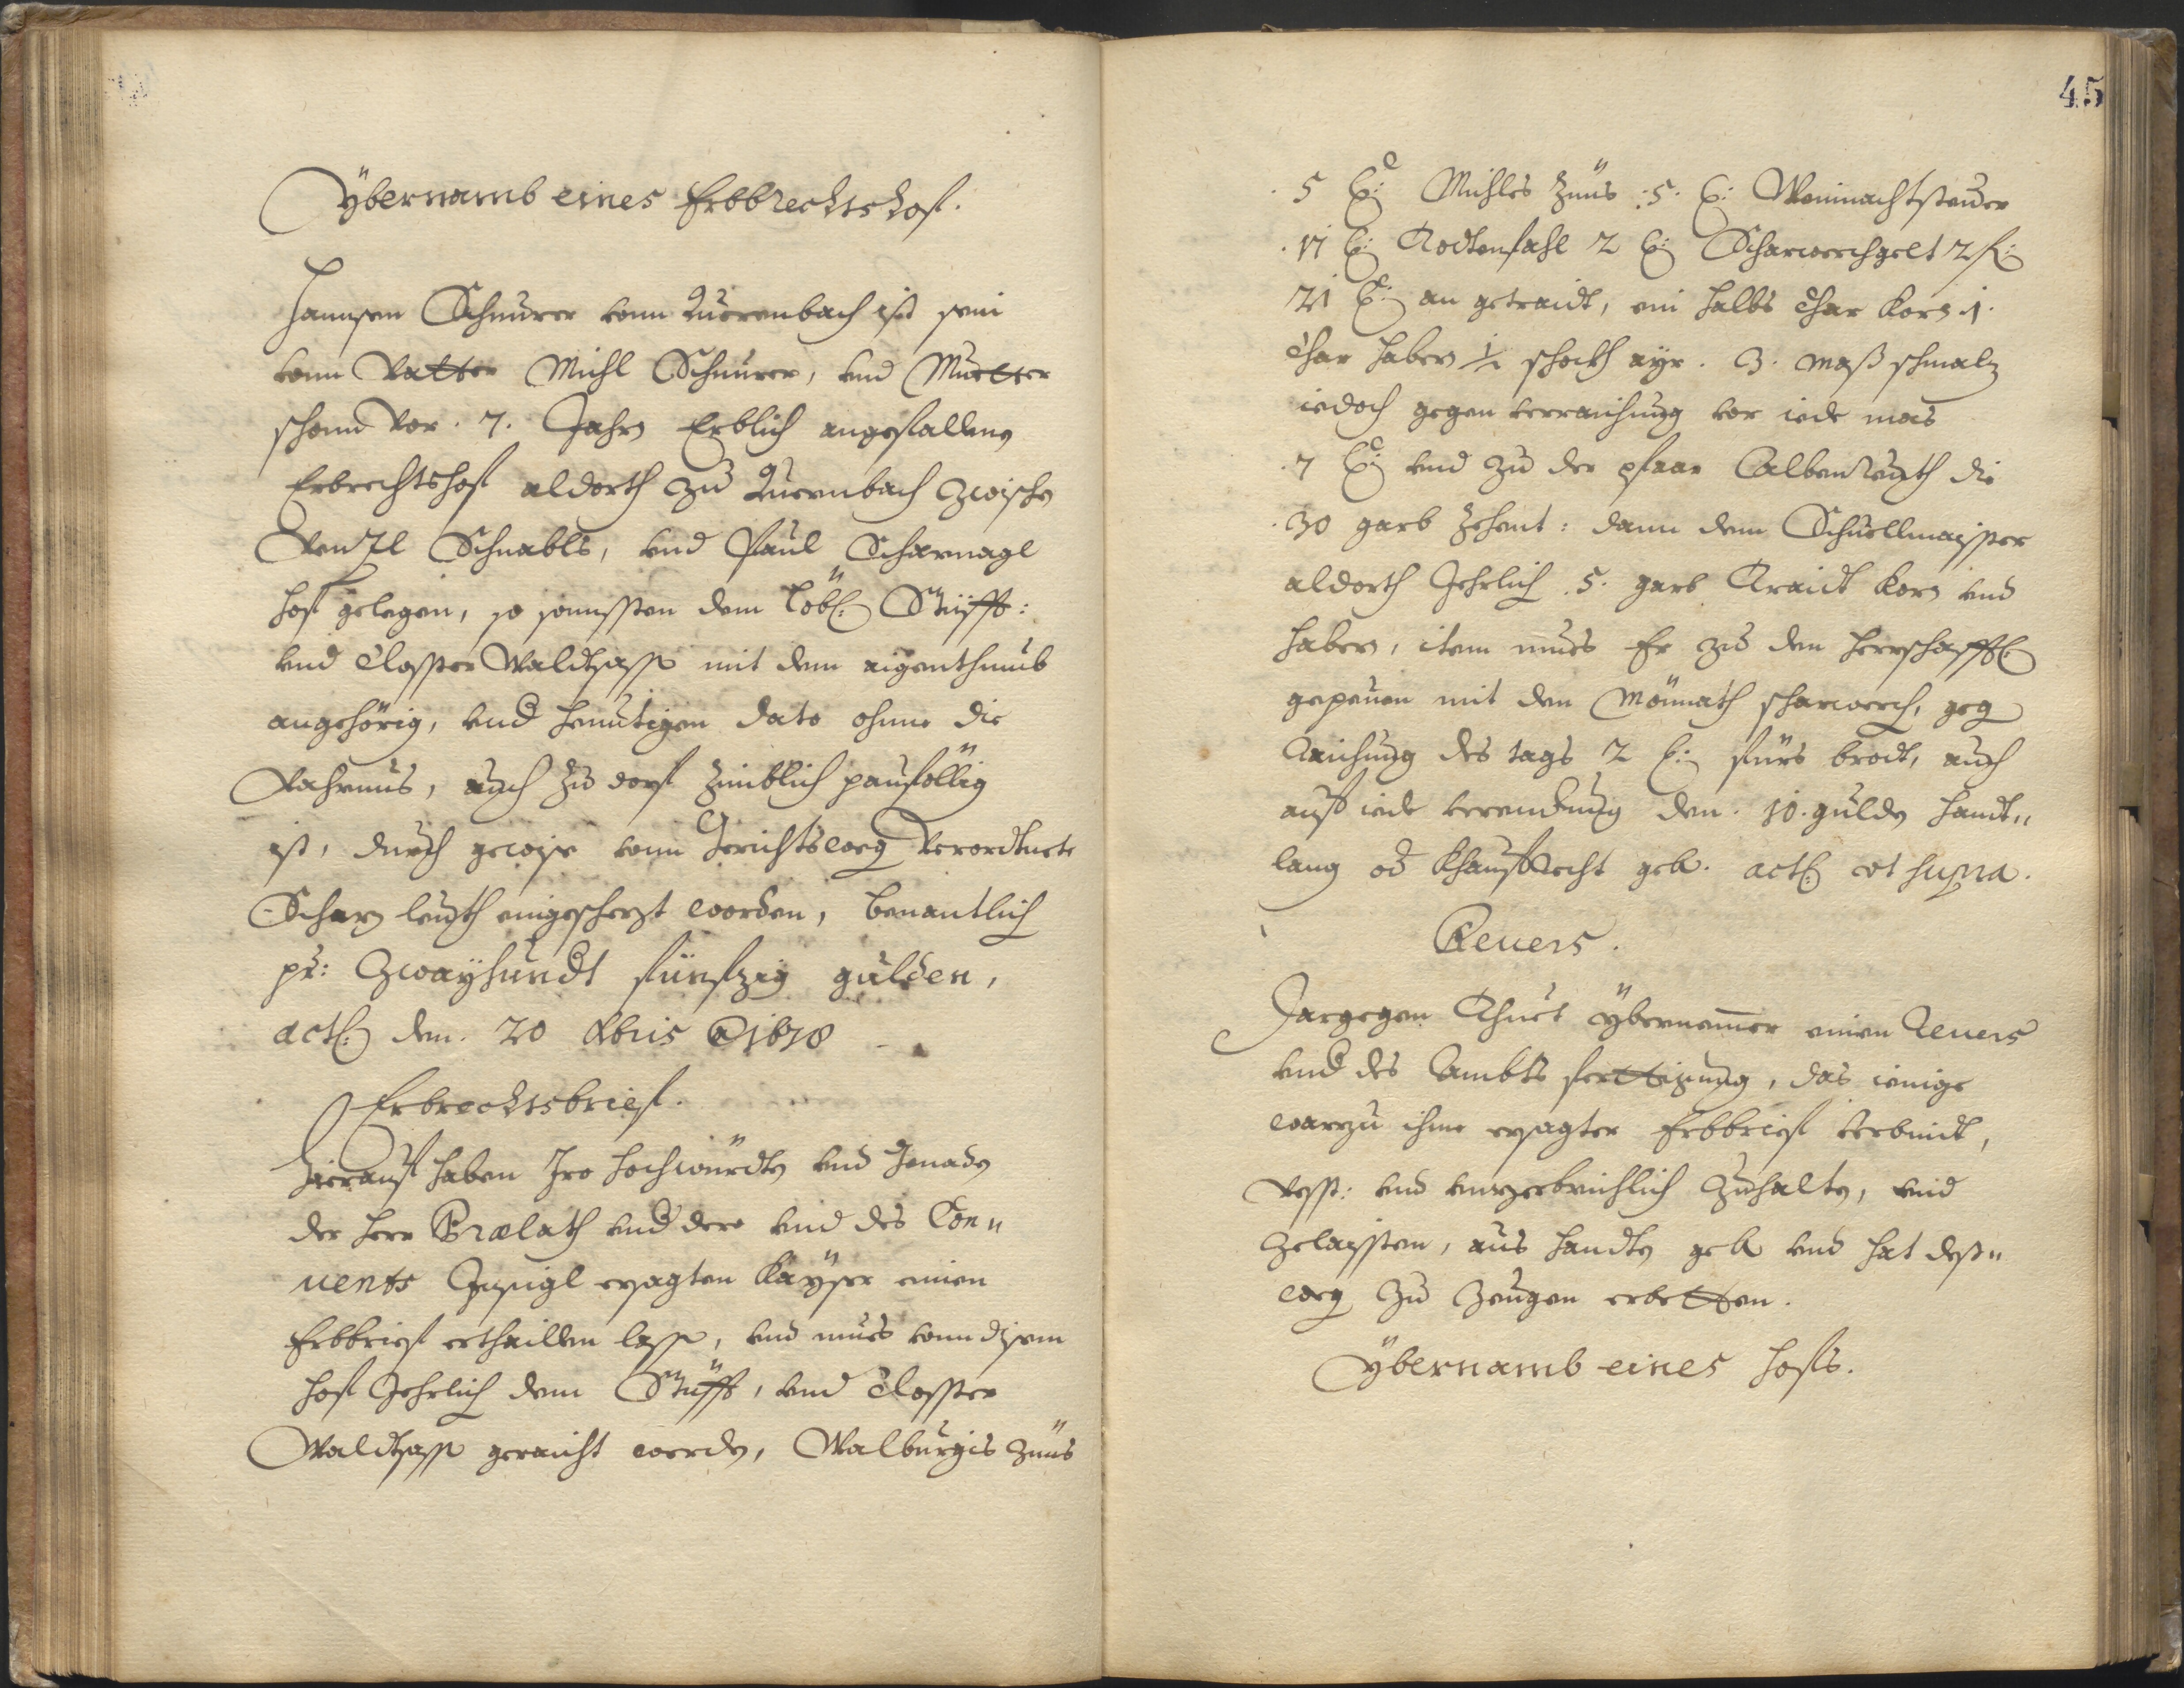 Ÿbernamb eines Erbbrechtshof.
Hannsen Schnurer vonn Querenbach ist sein
vonn Vatter Michl Schnurer, vnd Muetter
schonn vor .7. Jahrn Erblich angefallens
Erbrechtshof aldorth zu Quernbach zwischen
Wenzl Schnabls, vnd Paul Scharnagl
hof gelegen, so sonnsten dem löbl: Stüfft:
vnd Closster Waldtsassen mit dem aigenthumb
angehörig, vnd heuntigen dato ohne die
Vahrnus, auch zu dorf zimblich pauföllig
ist, durch gewise vonn Gerichtsweg verordtnete
Scharzleuth eingescherzt worden, benantlich
pr: Zwayhundt fünfzig gulden,
act: den. 20 Xbris A 1678
Erbrechtsbrief.
Hierauf haben Iro hochwürdten vnd Genaden
der herr Prælath vnd dero vnd des Con„
uents Innsigl ersagten Kayser einen
Erbbrief erthaillen lassen, vnd mues vonn disem
hof Jehrlich dem Stüfft, vnd Closster
Waldtsassen geraicht werden, Walburgis Zünß
45
. 5 ß: Michles Zünß .5. ß: Weinnachtsteuer
. 17 ß: Rockenfahl 2 ß: Scharwerchgelt 2 f:
21 ß: an getraidt, ein halbs Char Korn 1.
Char habern ½ schockh ayr. 3. mass schmalz
iedoch gegen verraichung vor iede mas
.7 ß: vnd zu der pfaar Albenreuth die
.30 garb zehent: dann dem Schuellmaister
aldorth Jehrlich .5. garb Traidt Korn vnd
habern, item mues Er zu den herrschafftl:
gepeuen mit den Mönnath scharwerch, geg
Raichung des tags 2 ß: fürs brodt, auch
auf iede verendtung den. 10. gulden handt„
lang od Khaufrecht geben. act: vt supra.
Reuers.
Dargegen Thuet ÿbernemer einen Reuers
vnd des Ambts ferttigung, das ienige
warzu ihme ersagter Erbbrief verbindt,
vesst: vnd vnzerbrichlich zuhalten, vnd
zelaissten, aus handten geben vnd hat dess„
weg zu zeugen erbetten.
Ÿbernamb eines hofs.